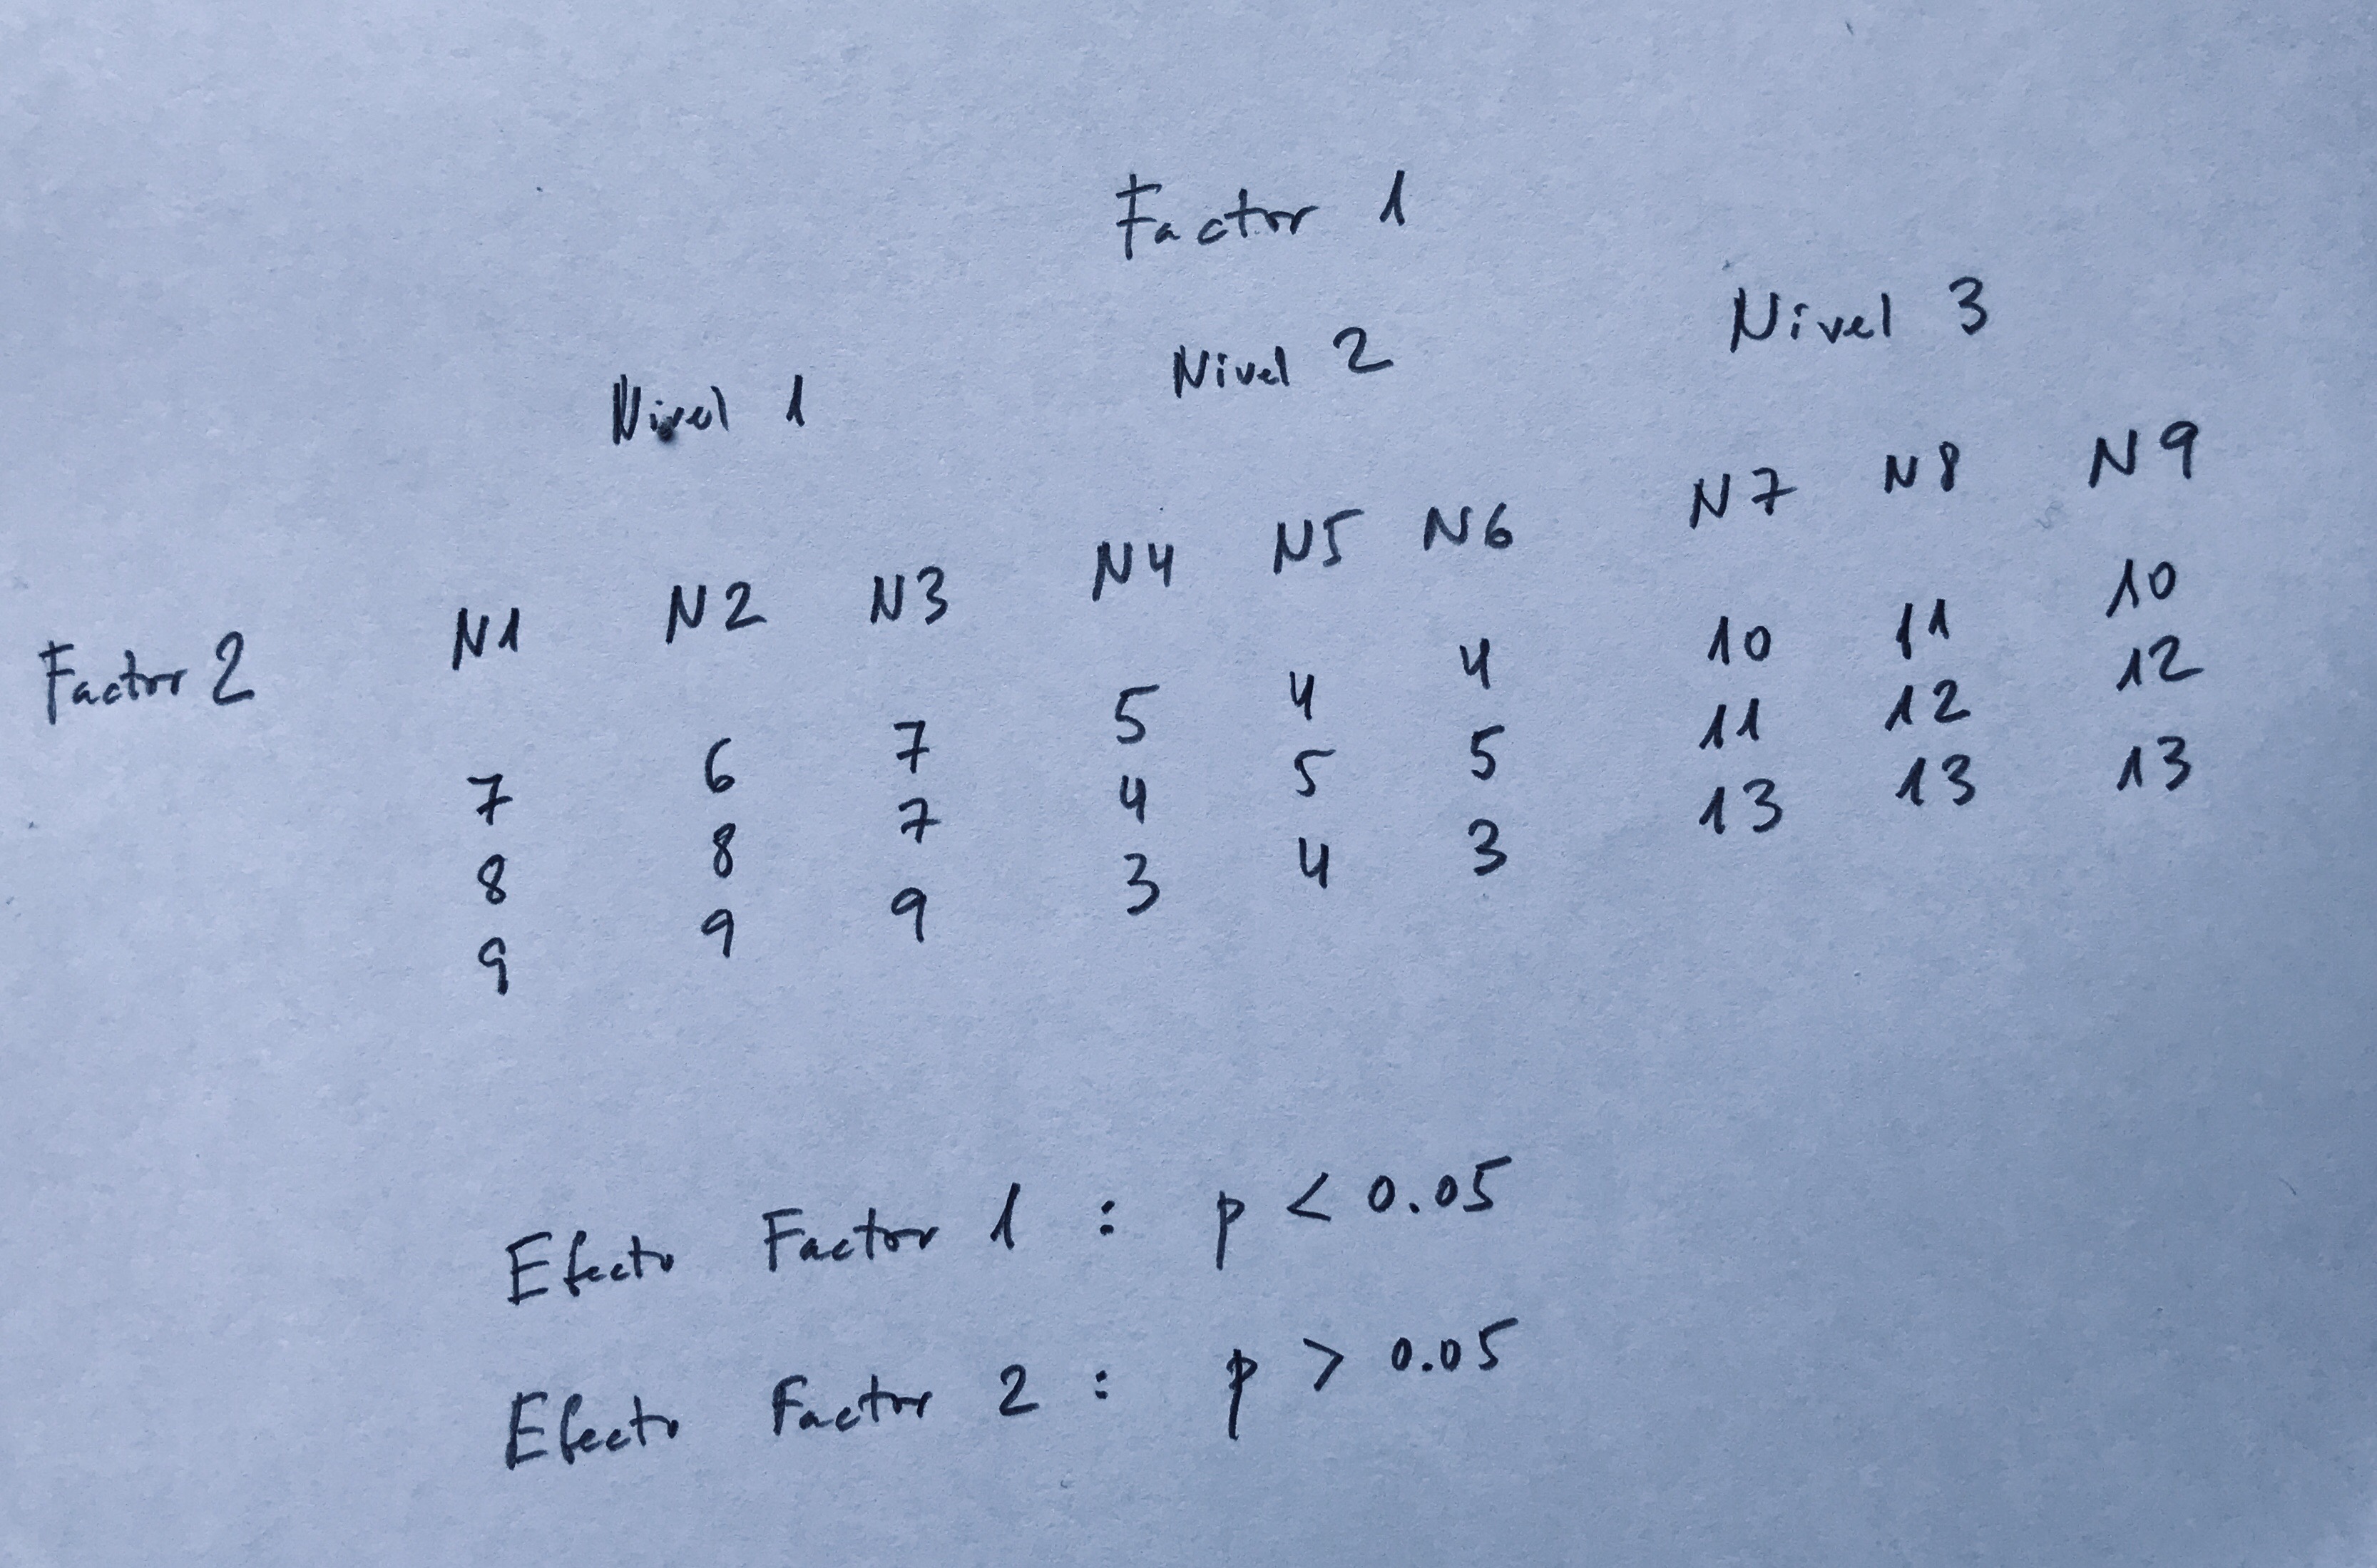 Factor 1
Nivel 1 Nivel 2 Nivel 3
Factor 2 N1 N2 N3 N4 N5 N6 N7 N8 N9
7 6 7 5 4 4 10 11 10
8 8 7 4 5 5 11 12 12
9 9 9 3 4 3 13 13 13
Efecto Factor 1 : p < 0.05
Efecto Factor 2 : p > 0.05